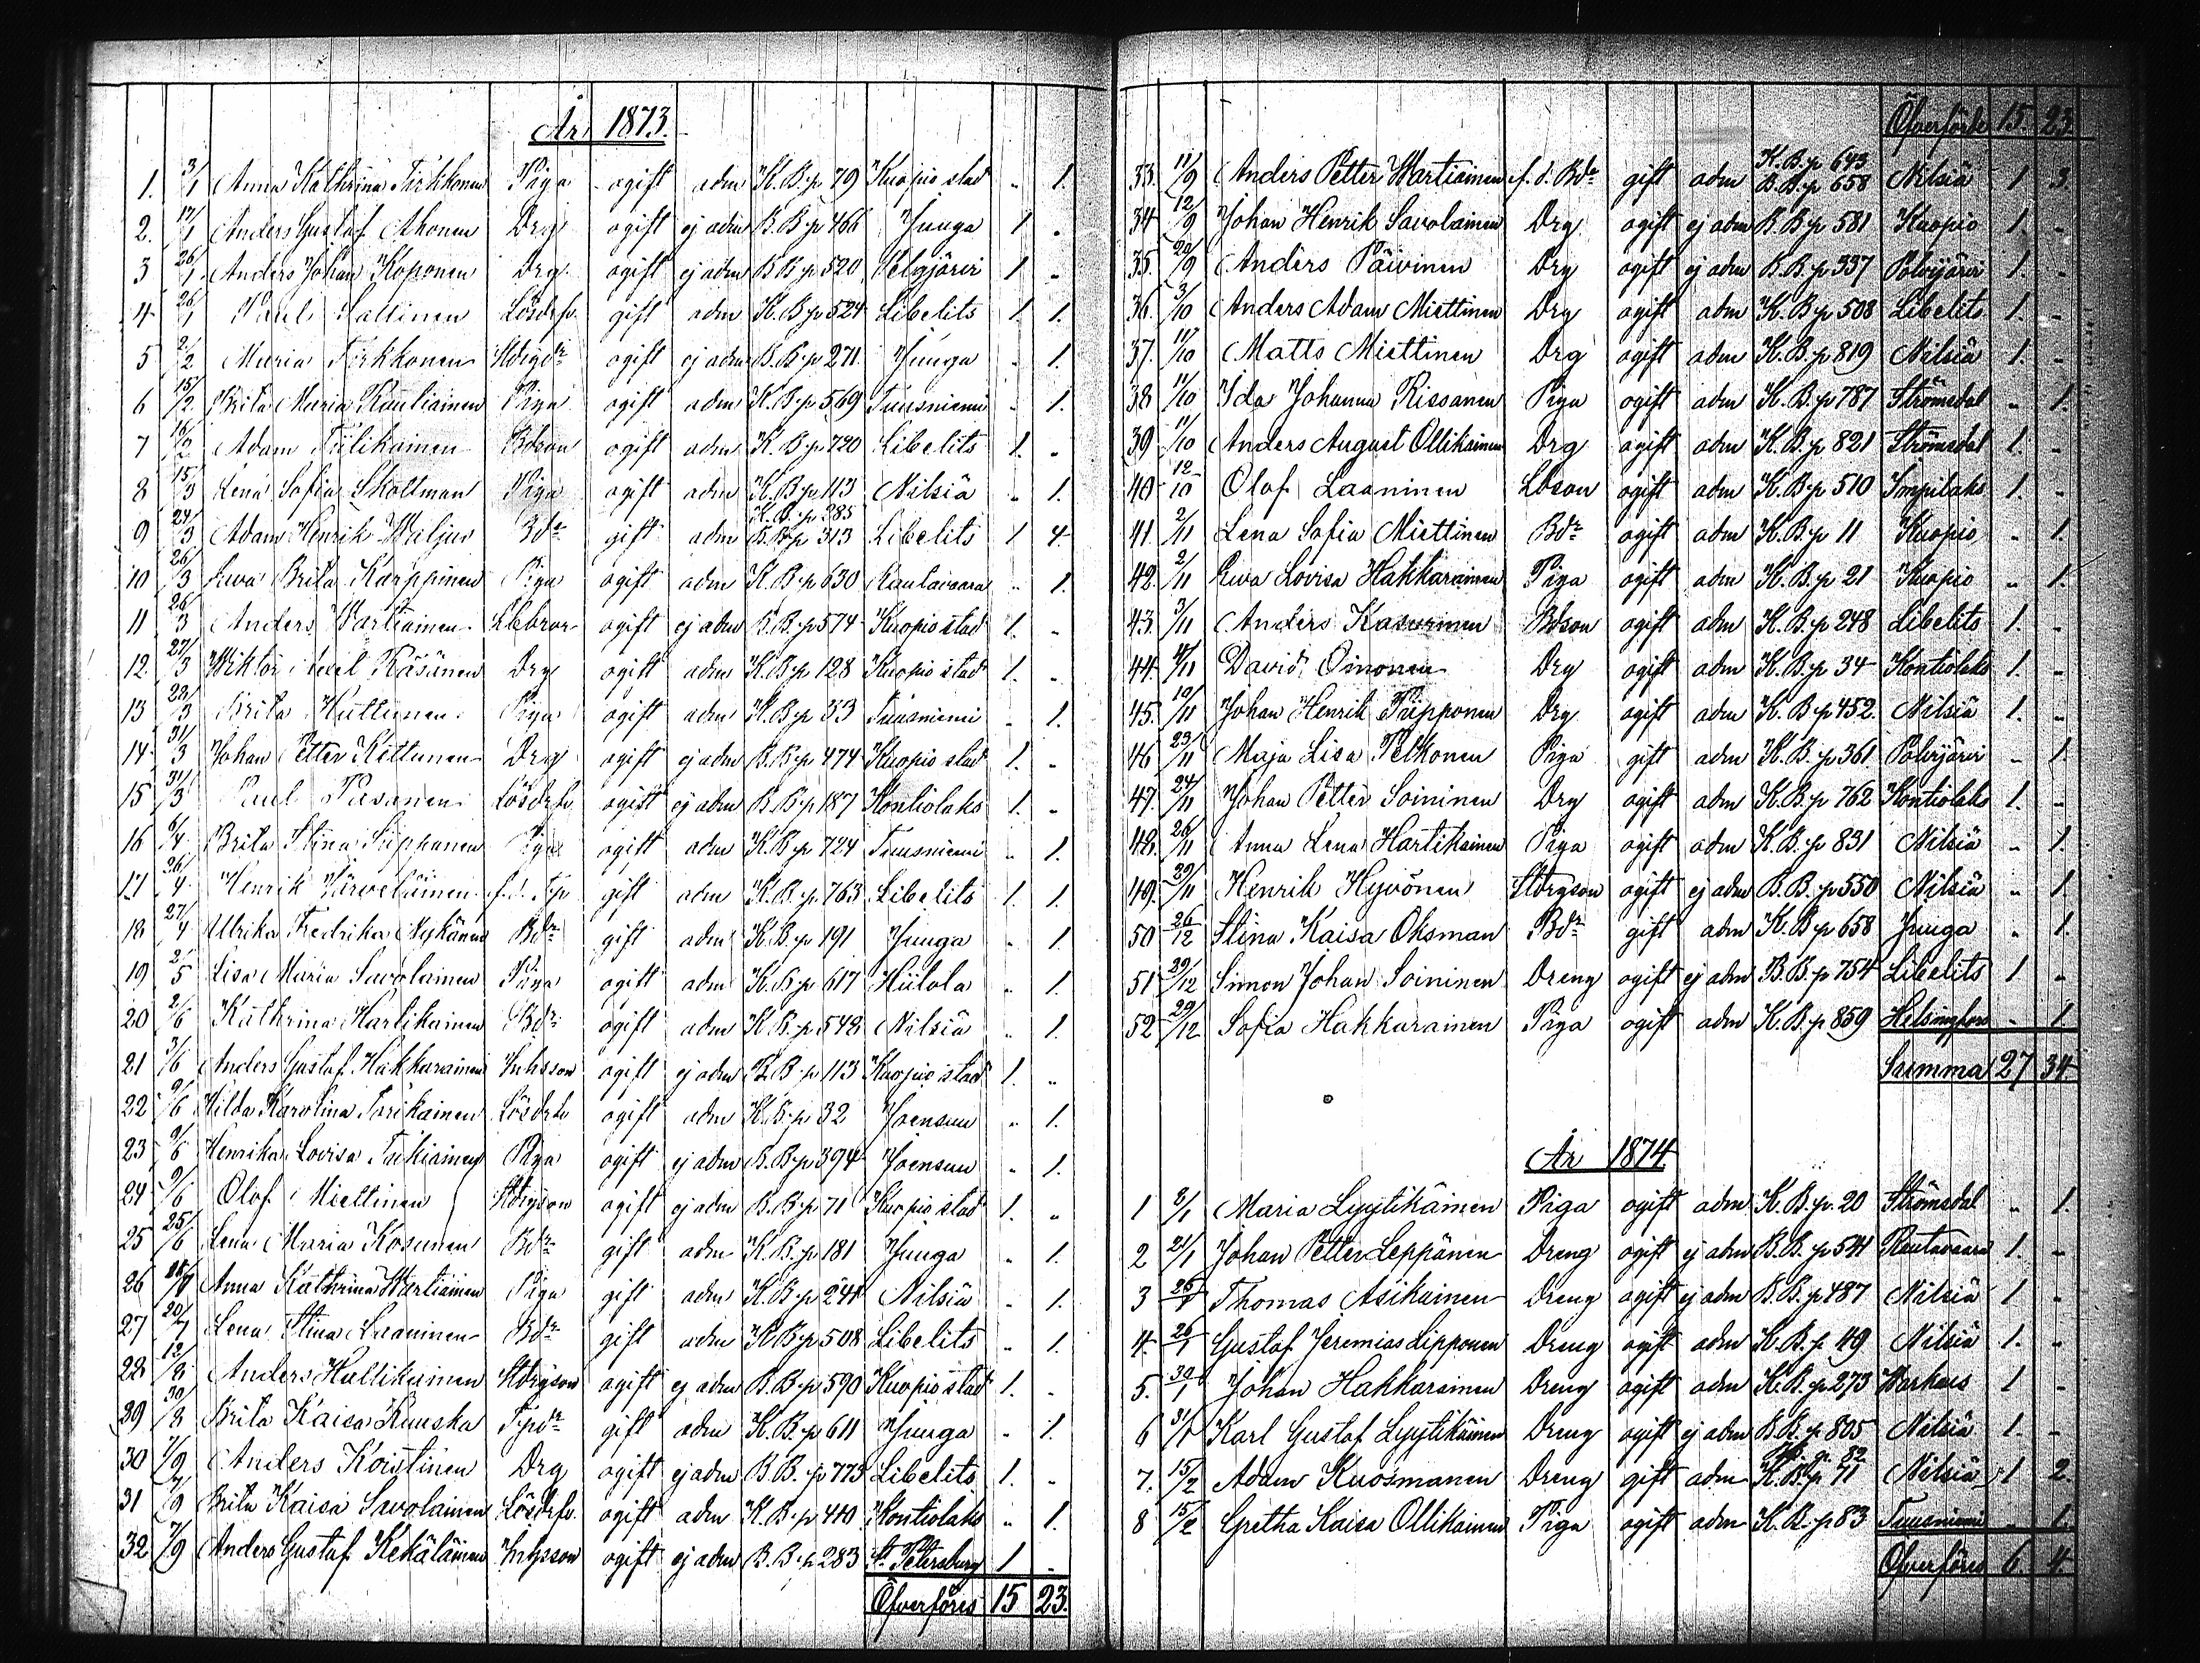 År 1873.
1. 3/1 Anna Kathrina Tirkkonen Piga ogift adm K.B.p 79 Kuopio stad „ 1.
2. 17/1 Anders Gustaf Ahonen Drg ogift ej adm B.B.p 466 Juuga 1 „
3 26/1 Anders Johan Koponen Drg. ogift ej adm B.B.p 520 1 „
4 26/1 Paul Lösdrfv. gift adm K.B.p 524 Libelits 1. 1.
5 2/2 Maria Tirkkonen ogift ej adm B.B.p 271. Juuga „ 1.
6 15/2 Brita Maria Rautiainen Piga ogift adm K.B.p 569 Tuusniemi „ 1.
7 16/2 Adam Bdson ogift adm K.B.p 720 Libelits 1. „
8 15/3 Lena Sofia Skottman Piga ogift adm K.B.p 113 Nilsiä „ 1.
K.B.p 285
9 24/3 Adam Henrik Wiljus Bdr gift adm B.B.p 313 Libelits 1 4.
10 26/3 Eeva Brita Karppinen Piga ogift adm K.B.p 630 Rautavaara „ 1.
11 26/3 Anders Wartiainen ogift ej adm B.B.p 574 Kuopio stad 1. „
12. 27/3 Wiktor Axel Räsänen Drg ogift adm K.B.p 128 Kuopio stad 1. „
13 28/3 Brita Huttunen Piga ogift adm K.B.p 33 Tuusniemi „ 1.
14. 31/3 Johan Petter Kettunen Drg ogift ej adm B.B.p 474 Kuopio stad 1. „
15 31/3 Paul Lösdrfv ogift ej adm B.B.p 187 Kontiolaks 1. „
16 6/4 Brita Stina Piga ogift adm K.B.p 724 Tuusniemi „ 1.
17 26/4 Henrik Järveläinen f.d. Trp gift adm K.B.p 763 Libelits 1. 1.
18 27/4 Ulrika Fredrika Nykänen Bdr gift adm K.B.p 191 Juuga „ 1.
19 2/5 Lisa Maria Savolainen Piga ogift adm K.B.p 617 Hiitola „ 1.
20 2/6 Kathrina Hartikainen Bdr ogift adm K.B.p 548 Nilsiä „ 1.
21 3/6 Anders Gustaf Hakkarainen Inhsson ogift ej adm B.B.p 113 Kuopio stad 1. „
22 9/6 Hilda Karolina Lösdrfv ogift adm K.B.p 32 Joensuu „ 1.
23 9/6 Henrika Lovisa Piga ogift ej adm B.B.p 394 Joensuu „ 1.
24 9/6 Olof Miettinen Stdrgson ogift ej adm B.B.p 71 Kuopio stad 1. „
25 25/6 Lena Maria Kosunen Bdr gift adm K.B.p 181 Juuga „ 1.
26 Anna Kathrina Wartiainen Piga gift adm K.B.p 241 Nilsiä „ 1.
27 20/7 Lena Stina Laaninen Bdr gift adm K.B.p 508 Libelits „ 1.
28 12/8 Anders Hallikainen Stdrgson ogift ej adm B.B.p 590 Kuopio stad 1. „
29 30/8 Brita Kaisa Ruuska Trpdr gift adm K.B.p 611 Juuga „ 1.
30 7/9 Anders Koistinen Drg ogift ej adm B.B.p 773 Libelits 1. „
31 7/9 Brita Kaisa Savolainen Lösdrfv. ogift adm K.B.p 410 Kontiolaks „ 1.
32 7/9 Anders Gustaf Kekäläinen Inhsson ogift ej adm B.B.p 283 St. Petersburg 1 „
Öfverföres 15 23.
Öfverfördt 15. 23.
K.B.p 643
33. 11/9 Anders Petter Wartiainen f.d. Bdr gift adm B.B.p 658 Nilsiä 1 3.
34 12/9 Johan Henrik Savolainen Drg ogift ej adm B.B.p 581 Kuopio 1. „
35. 20/9 Anders Päivinen Drg ogift ej adm B.B.p 337 Polvijärvi 1. „
36. 3/10 Anders Adam Miettinen Drg ogift adm K.B.p 508 Libelits 1. „
37. 11/10 Matts Miettinen Drg ogift adm K.B.p 819 Nilsiä 1. „
38 11/10 Ida Johanna Rissanen Piga ogift adm K.B.p 787 Strömsdal „ 1.
39. 11/10 Anders August Ollikainen Drg ogift adm K.B.p 821 Strömsdal 1. „
40 12/10 Olof Laaninen Lbson ogift adm K.B.p 510 Impilaks 1. „
41. 2/11 Lena Sofia Miettinen Bdr ogift adm K.B.p 11 Kuopio „ 1.
42. 2/11 Eeva Lovisa Hakkarainen Piga ogift adm K.B.p 21 Kuopio „ 1.
43. 3/11 Anders Kasurinen Bdson ogift adm K.B.p 248 Libelits 1. „
44. 4/11 David Oinonen Drg ogift adm K.B.p 34 Kontiolaks 1. „
45. 19/11 Johan Henrik Pripponen Drg ogift adm K.B.p 452. Nilsiä 1. „
46 23/11 Maja Lisa Pelkonen Piga gift adm K.B.p 361 Polvijärvi „ 1.
47. 24/11 Johan Petter Soininen Drg ogift adm K.B.p 762 Kontiolaks 1. „
48. 26/11 Anna Lena Hartikainen Piga ogift adm K.B.p 831 Nilsiä „ 1.
49. 29/11 Henrik Hyvönen Stdrgson ogift ej adm B.B.p 550 Nilsiä „ 1.
50 26/12 Stina Kaisa Oksman Bdr gift adm K.B.p 658 Juuga „ 1.
51 29/12 Simon Johan Soininen Dreng ogift ej adm B.B.p 754 Libelits 1 „
52 29/12 Sofia Hakkarainen Piga ogift adm K.B.p 859 Helsingfors „ 1.
Summa 27 34
År 1874.
1 2/1 Maria Lyytikäinen Piga ogift adm K.B.p. 20 Strömsdal „ 1.
2 21/1 Johan Petter Leppänen Dreng ogift ej adm B.B.p 541 Rautavaara 1. „
3 26/1 Thomas Asikainen Dreng ogift ej adm B.B.p 487 Nilsiä 1 „
4. 26/1 Gustaf Jeremias Lipponen Dreng ogift adm K.B.p 49 Nilsiä 1. „
5. 30/1 Johan Hakkarainen Dreng ogift adm K.B.p 273 Warkaus 1 „
6 31/1 Karl Gustaf Lyytikäinen Dreng ogift ej adm B.B.p 805 Nilsiä 1. „
82
7. 15/2 Adam Kuosmanen Dreng gift adm K.B.p 71 Nilsiä 1 2.
8 15/2 Gretha Kaisa Ollikainen Piga ogift adm K.B.p 83 Tuusniemi „ 1.
Öfverföres 6. 4.